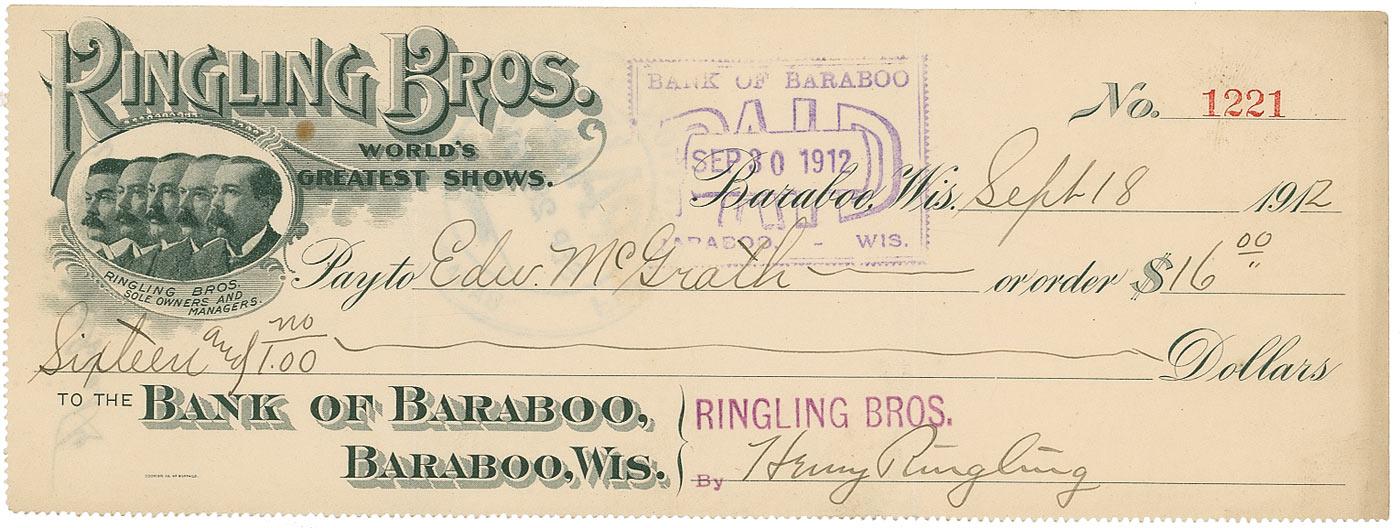 RINGLING BROS.
WORLD'S
GREATEST SHOWS.
RINGLING BROS.
SOLE OWNERS AND
MANAGERS.
BANK OF BARABOO
PAID
SEP 30 1912
BARABOO, - WIS.
No. 1221
Baraboo, Wis. Sept 18 1912
Pay to Edw. McGrath or order $16 00
Sixteen and no/100 Dollars
TO THE BANK OF BARABOO,
BARABOO, WIS.
RINGLING BROS.
By Henry Ringling